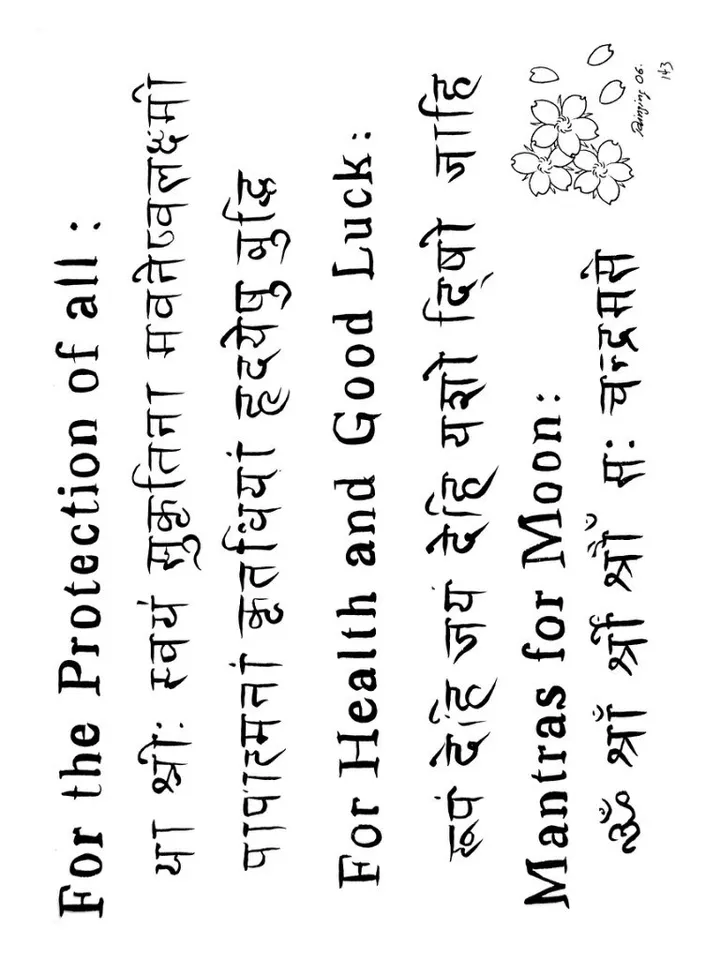 For the Protection of all:
या श्रीः स्वयं सुकृतिना मवनेष्वलक्ष्मी
पापात्मनां कृतधियां हृदयेषु बुद्धि
For Health and Good Luck:
रूपं देहि जयं देहि यशो दिषो जाहि
Mantras for Moon:
ॐ श्राँ श्रीं श्रौं सः चन्द्रमसे
06.
143